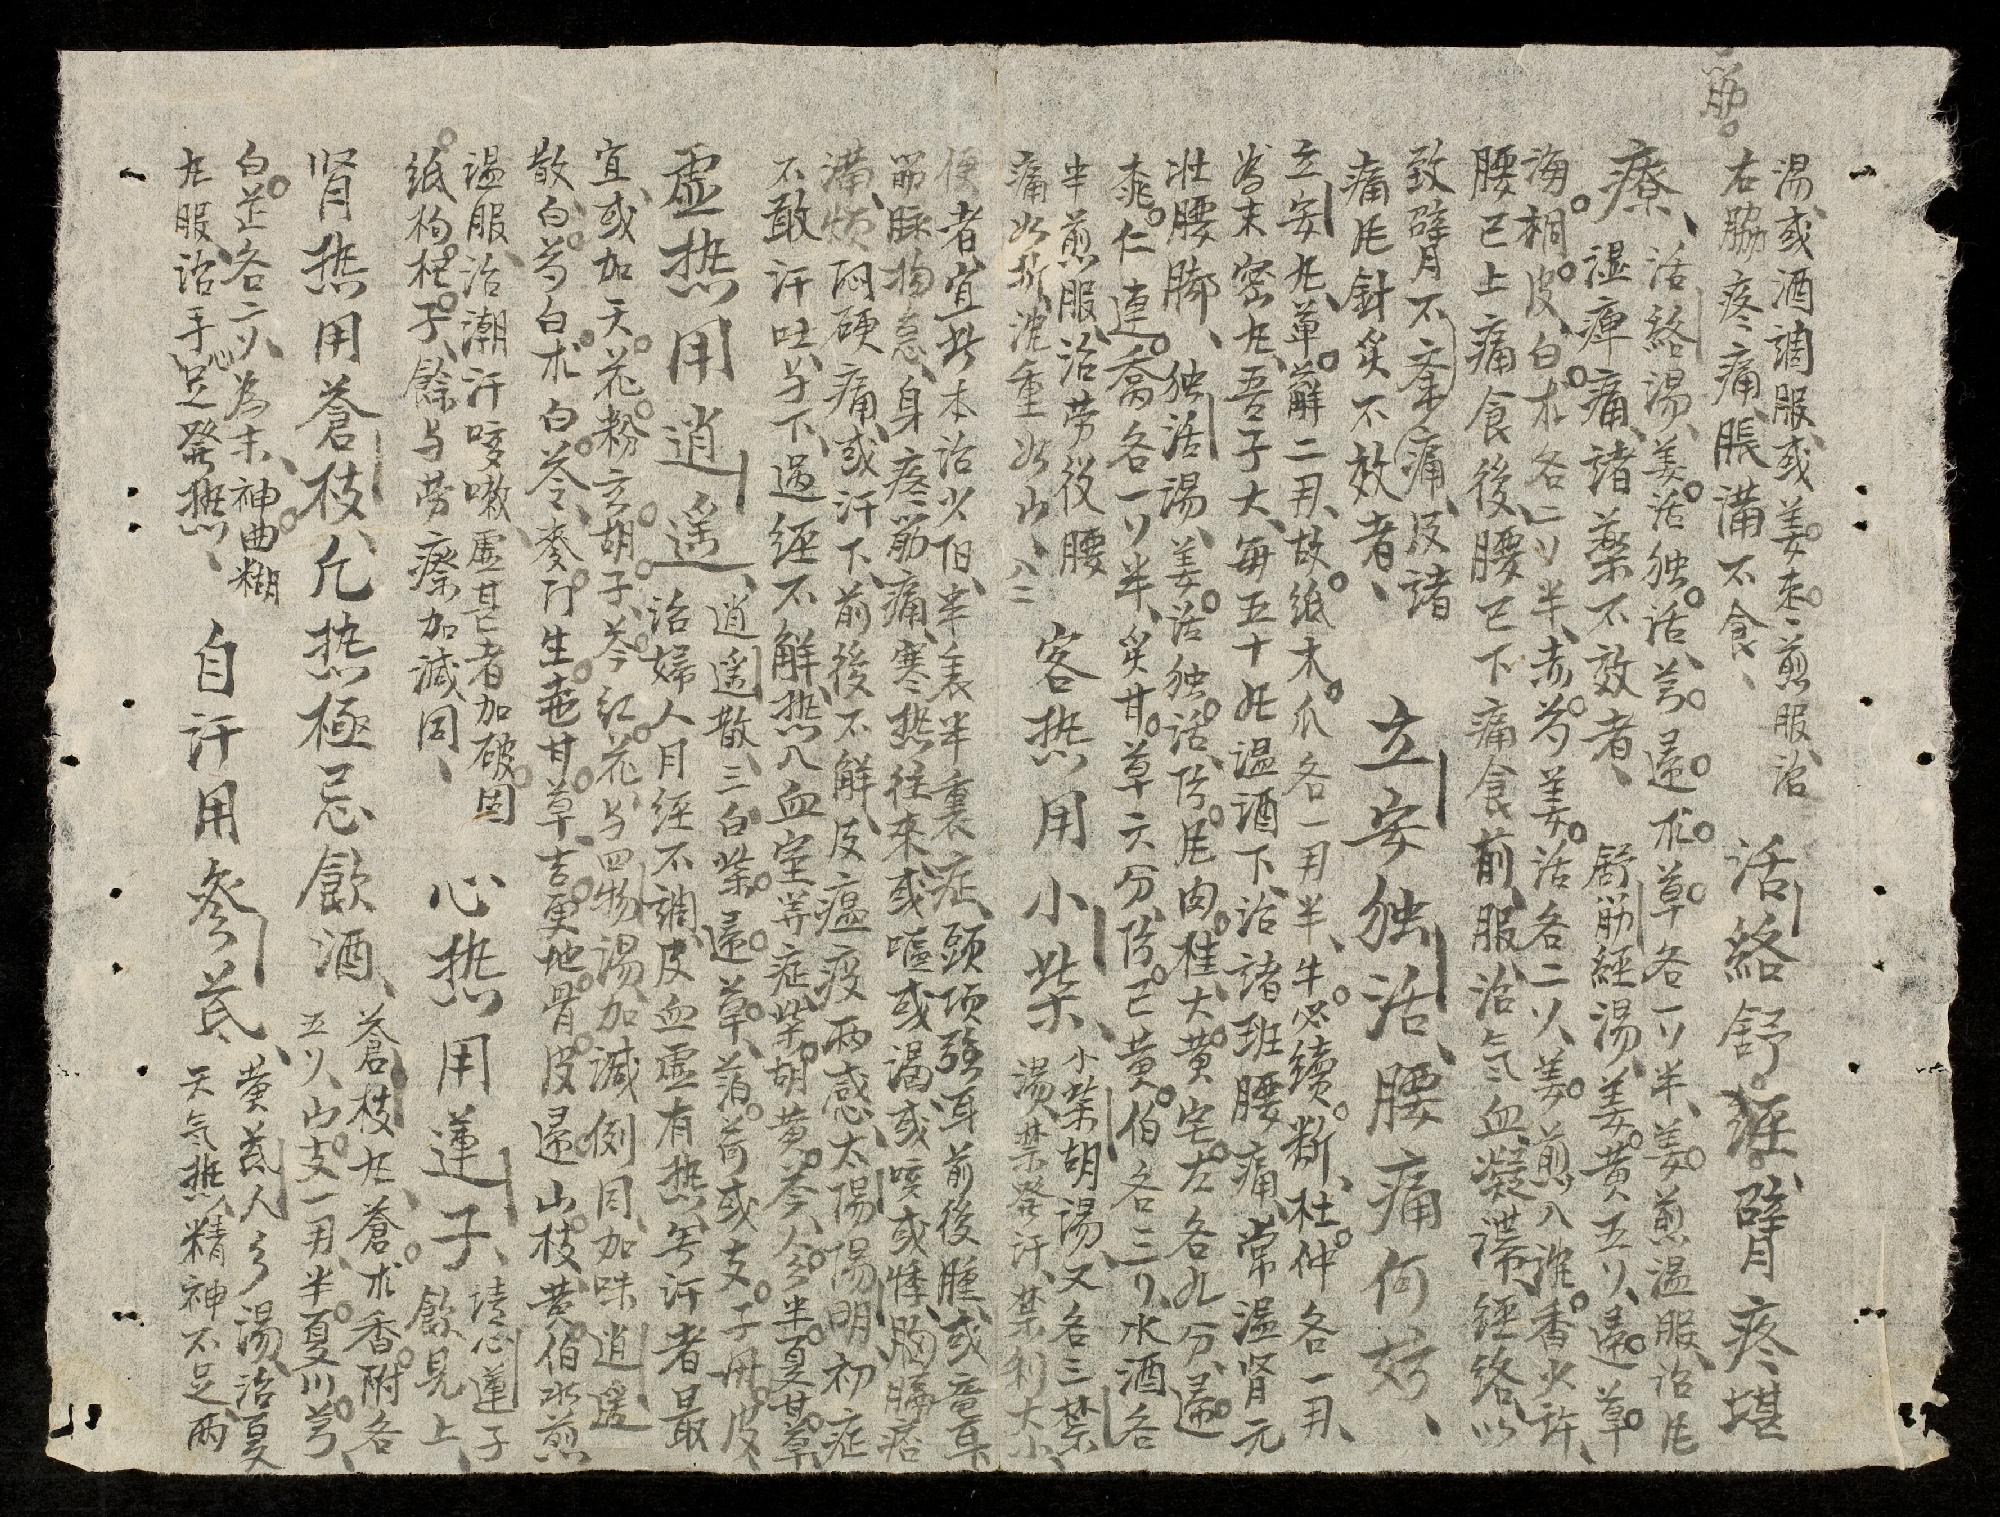 湯或酒調服或姜枣煎服治
右脇疼痛脹满不食、
活絡舒經臂疼堪
療、
活絡湯、姜活独活芎归朮草各一刂半、姜煎温服治
湿痺痛諸藥不效者、
舒筋經湯、姜黄五刂、归草
海桐皮白朮各二刂半、赤芍姜活各二刂、姜煎入沈香少許、
腰已上痛食後、腰已下痛食前服治气血凝滞經絡以
致臂不举痛、及諸
痛凡針灸不效者、
立安独活腰痛何妨、
立安丸、萆薢二用、故纸木爪各一用半、牛必續断、杜仲各一用、
为末密丸、吾子大、每五十丸温酒下治諸班腰痛、常温肾元
壮腰脚、独活湯、姜活独活防尼肉桂大黄宅左各九分、归
桃仁連喬各一刂半、炙甘草六分、防已黄伯各三刂、水酒各
半煎服、治劳役腰
痛如折、沈重如山、
客热用小柴、
小柴胡湯又名三禁
湯、禁発汗、禁利大小
便者宜此、本治少阳半表半裏症、頭项强耳前後腫或竜耳
筋脉拘急、身疼筋痛、寒热往来或嘔或渴或咳或悸、胸膈痞
满、烦悶硬痛、或汗下前後不解、及瘟疫两感太陽陽明初症
不敢汗吐下、过經不解、热入血室等症、柴胡黄芩人参半夏甘草
虚热用逍遥、
逍遥散、三白柴归草薄荷或支子毋皮
治婦人月經不調、皮血虚有热、無汗者最
宜或加天花粉玄胡子、芩红花与四物湯加減、側同加味逍遥
散、白芍白朮白苓、麦门生苑甘草吉更地骨皮归山枝黄伯水煎
温服治潮汗咳嗽虚甚者加破固
纸构杞子、餘与劳瘵加減同、
心热用蓮子、
清心蓮子
飲見上、
肾热用蒼枝、凡热極忌飲酒、
蒼枝丸、蒼朮香附各
五刂、山支一用、半夏川芎
白芷各二刂、为末、神曲糊
丸服治手足心発热、
自汗用參芪、
黄芪人參湯、治夏
天气热、精神不足両